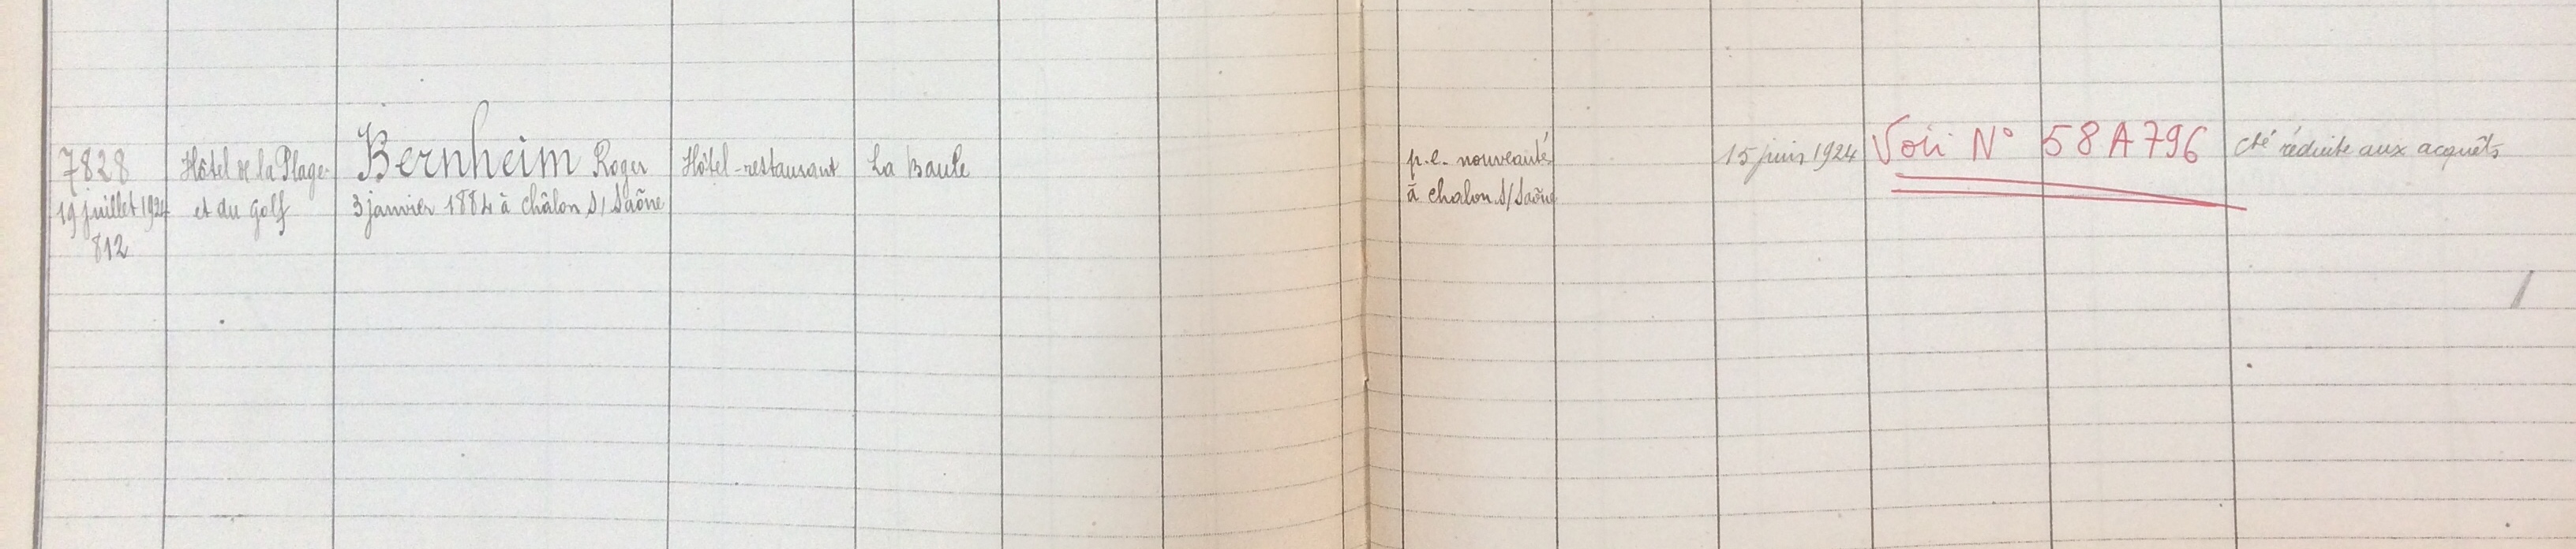 7828
19 juillet 1924
812
Hôtel de la Plage
et du Golf
Bernheim Roger
3 janvier 1884 à châlon S/ Saône
Hôtel-restaurant
La Baule
p.e. nouveauté
à chalon S/Saône
15 juin 1924
Voir N° 58 A 796
cté réduite aux acquêts